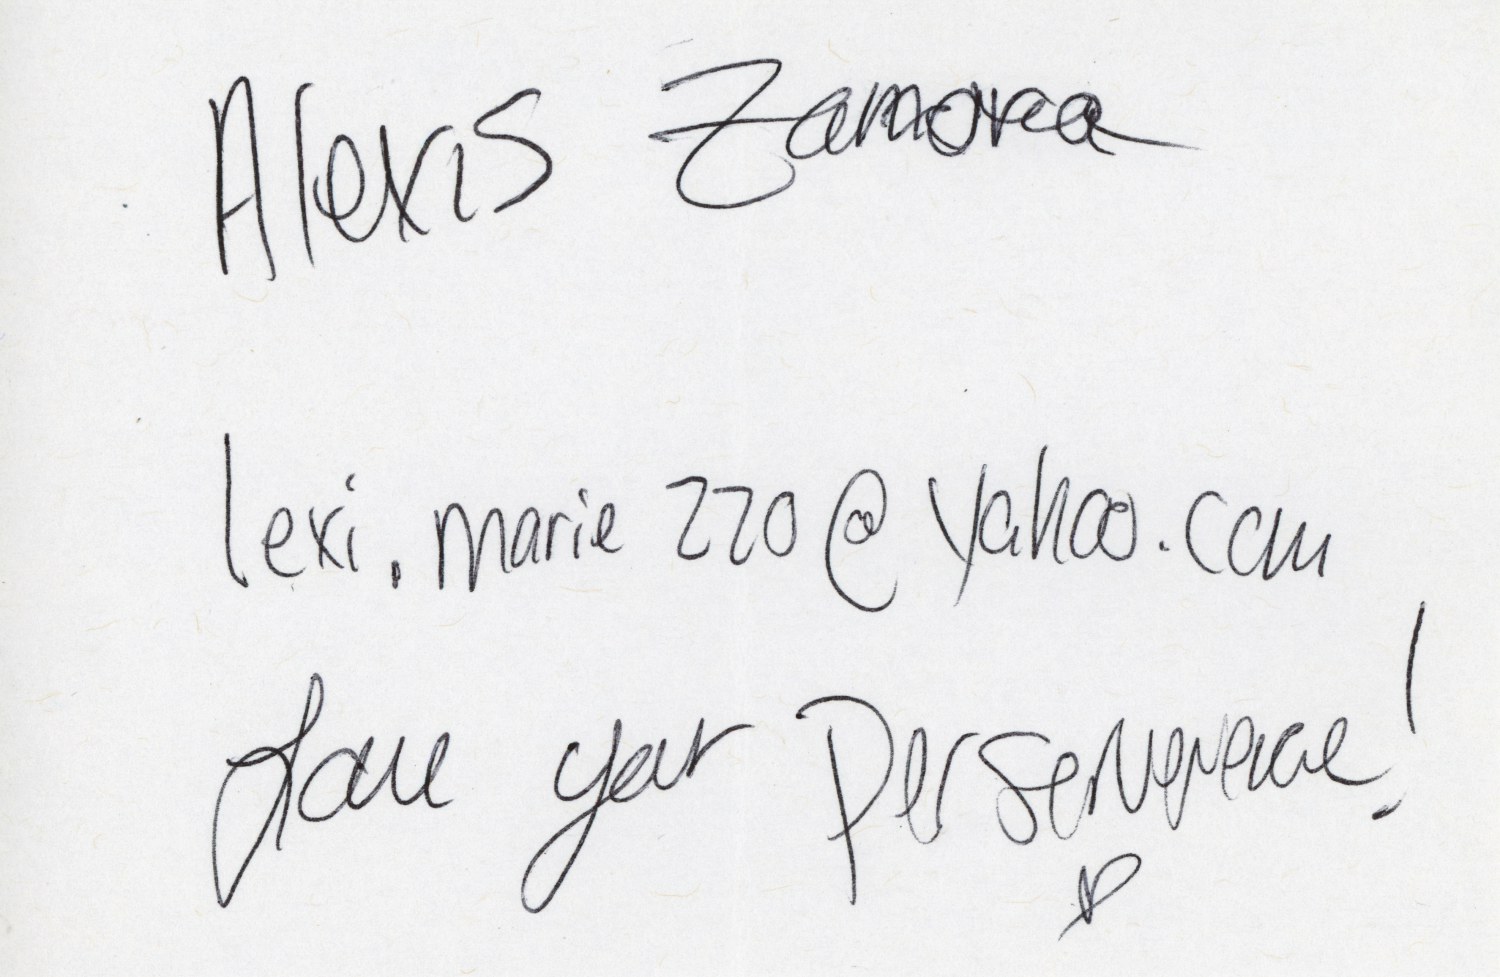 Alexis Zamora
lexi.marie220@yahoo.com
Love your Perserverence!